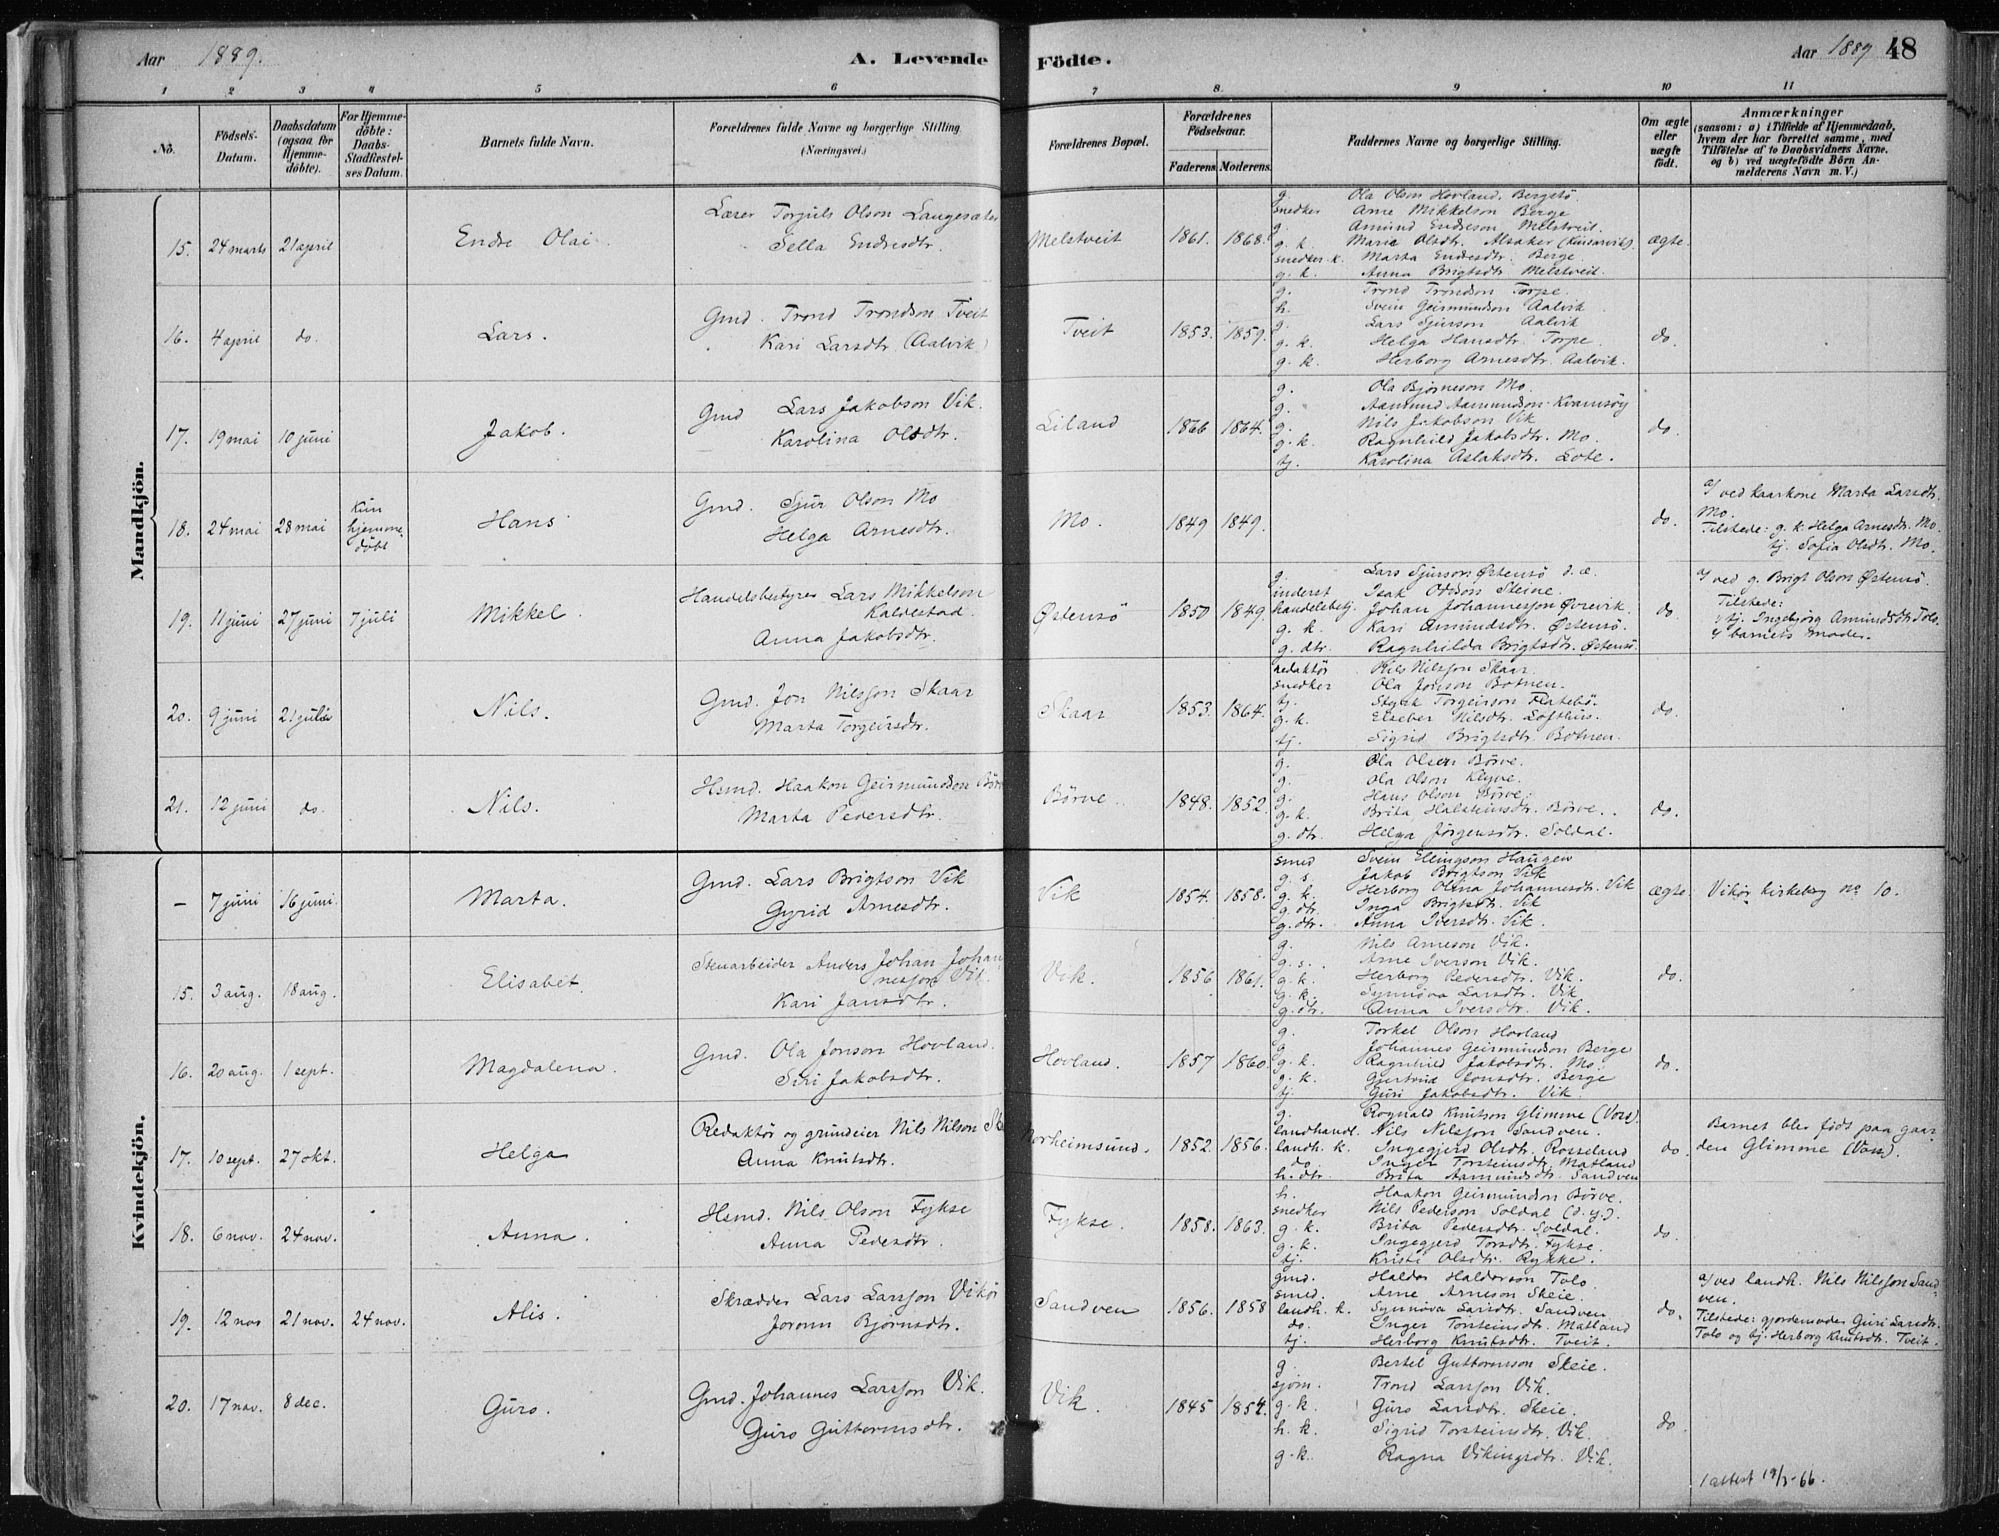 Aar 1889. A. Levende Födte. Aar 1889 48
1 2 3 4 5 6 7 8 9 10 11
No. Födsels-Datum. Daabsdatum (ogsaa for Hjemme-döbte). For Hjemme-döbte: Daabs-Stadfæstel-ses Datum. Barnets fulde Navn. Forældrenes fulde Navne og borgerlige Stilling. (Næringsvei.) Forældrenes Bopæl. Forældrenes Födselsaar. Faderens Moderens. Faddernes Navne og borgerlige Stilling. Om ægte eller uægte födt. Anmærkninger (saasom: a) i Tilfælde af Hjemmedaab, hvem der har forrettet samme, med Tilföielse af to Daabsvidners Navne, og b) ved uægtefödte Börn An-melderens Navn m. V.)
Mandkjön.
15. 24 marts 21 april Endre Olai. Lærer Torjuls Olson Langesæter
Sella Endresdtr. Melstveit 1861. 1868. ægte
g. Ola Olson Hovland. Bergstö
snedker Arne Mikkelson Berge
g. Amund Endreson Melstveit.
g. k. Marie Olsdtr. Alsaker (Kinsarvik).
snedker k. Marta Endresdtr. Berge.
g. k. Anna Brigtsdtr. Melstveit.
16. 4 april do. Lars. Gmd. Trond Trondson Tveit
Kari Larsdtr. (Aalvik) Tveit 1853. 1859. do.
g. Trond Trondson Torpe.
h. Svein Geirmundson Aalvik
g. Lars Sjurson Aalvik
g. k. Helga Hansdtr. Torpe.
g. k. Herborg Arnesdtr. Aalvik.
17. 19 mai 10 juni Jakob. Gmd Lars Jakobson Vik.
Karolina Olsdtr. Liland 1866 1864. do.
g. Ola Bjørneson Mo.
g. Aamund Aamundson Kvamsøy
g. Nils Jakobson Vik
g. k. Ragnhild Jakobsdtr. Mo.
tj. Karolina Aslaksdtr. Lote.
18. 24 mai 28 mai Kun hjemme-döbt Hans Gmd. Sjur Olson Mo
Helga Arnesdtr. Mo. 1849 1849. do.
a/ ved kaarkone Marta Larsdtr.
Mo.
Tilstede: g. k. Helga Arnesdtr. Mo.
tj. Sofia Olsdtr. Mo.
19. 11 juni 27 juni 7 juli Mikkel. Handelsbestyrer Lars Mikkelson
Kaldestad
Anna Jakobsdtr. Østensö 1850 1849. do
g. Lars Sjurson Østensö d. æ.
inderst Isak Olson Steine.
handelsbetj. Johan Johannesson Øvrevik.
g. k. Kari Amundsdtr. Østensö.
g. dtr. Ragnhilda Brigtsdtr. Østensö.
a/ ved g. Brigt Olson Østensö.
Tilstede:
tj. Ingebjörg Amundsdtr. Tolo.
barnets moder.
20. 9 juni 21 juli Nils. Gmd. Jon Nilsson Skaar
Marta Torgeirsdtr. Skaar 1853. 1864. do.
redaktør Nils Nilsson Skaar
snedker Ola Jonson Botnen.
tj. Styrk Torgeirson Flatebö.
g. k. Elseber Nilsdtr. Lofthus.
tj. Sigrid Brigtsdtr. Botnen.
21. 12 juni do. Nils. Hsmd. Haakon Geirmundson Börve
Marta Pedersdtr. Börve. 1848. 1852. do.
g. Ola Olsen Börve.
g. Ola Olson Klyve.
g. Hans Olson Börve.
g. k. Brita Halsteinsdtr. Börve.
g. dtr. Helga Jörgensdtr. Soldal.
Kvindekjön.
– 7 juni 16 juni. Marta. Gmd. Lars Brigtson Vik
Gyrid Arnesdtr. Vik 1854. 1858. ægte. Vikör kirkebog no 10.
smed Svein Ellingson Haugen
g. s. Jakob Brigtson Vik
g. k. Herborg Olina Johannesdtr. Vik
g. dtr. Inga Brigtsdtr. Vik
g. dtr. Anna Iversdtr. Vik.
15. 3 aug. 18 aug. Elisabet. Stenarbeider Anders Johan Johan-
nesson Vik.
Kari Jansdtr. Vik. 1856 1861. do.
g. Nils Arneson Vik.
g. s. Arne Iverson Vik.
g. k. Herborg Pedersdtr. Vik.
g. k. Synnöva Larsdtr. Vik
g. dtr. Anna Iversdtr. Vik.
16. 20 aug. 1 sept. Magdalena. Gmd. Ola Jonson Hovland.
Siri Jakobsdtr. Hovland. 1857 1860. do.
g. Torkel Olson Hovland
g Johannes Geirmundson Berge
g. k. Ragnhild Jakobsdtr. Mo.
g. k. Gjertrud Jonsdtr. Berge
tj. Guri Jakobsdtr. Vik.
17. 10 sept. 27 okt. Helga Redaktör og grundeier Nils Nilson
Anna Knutsdtr. Norheimsund. 1852. 1856. do.
g. Rognald Knutson Glimme (Vors).
landhandl. Nils Nilsson Sandven.
landh. k. Ingegjerd Olsdtr. Rosseland
do. Inger Torsteinsdtr. Matland
h. dtr. Brita Aamundsdtr. Sandven
Barnet blev födt paa gaar-
den Glimme (Vors).
18. 6 nov. 24 nov. Anna. Hsmd. Nils Olson Fykse
Anna Pedersdtr. Fykse. 1858. 1863. do.
h. Haakon Geirmundson Börve.
snedker Nils Pederson Soldal (d. y.).
g. k. Brita Pedersdtr. Soldal.
g. k. Ingegjerd Torsdtr. Fykse.
tj. Kristi Olsdtr. Rykke.
19. 12 nov 21 nov. 24 nov. Alis. Skrædder Lars Larsson Vikör
Joronn Bjørnsdtr. Sandven 1856. 1858 do.
gmd. Haldor Haldorson Tolo
smed. Arne Arneson Skeie.
landh. k. Synnöva Larsdtr. Sandven
do. Inger Torsteinsdtr. Matland
tj. Herborg Knutsdtr. Tveit.
a/ ved landh. Nils Nilsson Sand-
ven.
Tilstede: gjordemoder Guri Larsdtr.
Tolo og tj. Herborg Knutsdtr. Tveit.
20. 17 nov. 8 dec. Guro. Gmd. Johannes Larsson Vik.
Guro Guttormsdtr. Vik. 1845 1854. do
g. Bertel Guttormson Skeie.
sjöm. Trond Larsson Vik.
g. k. Guro Larsdtr. Skeie.
h. k. Sigrid Torsteinsdtr. Vik.
g. k. Ragna Vikingsdtr. Vik.
1 attest 19/3-66.